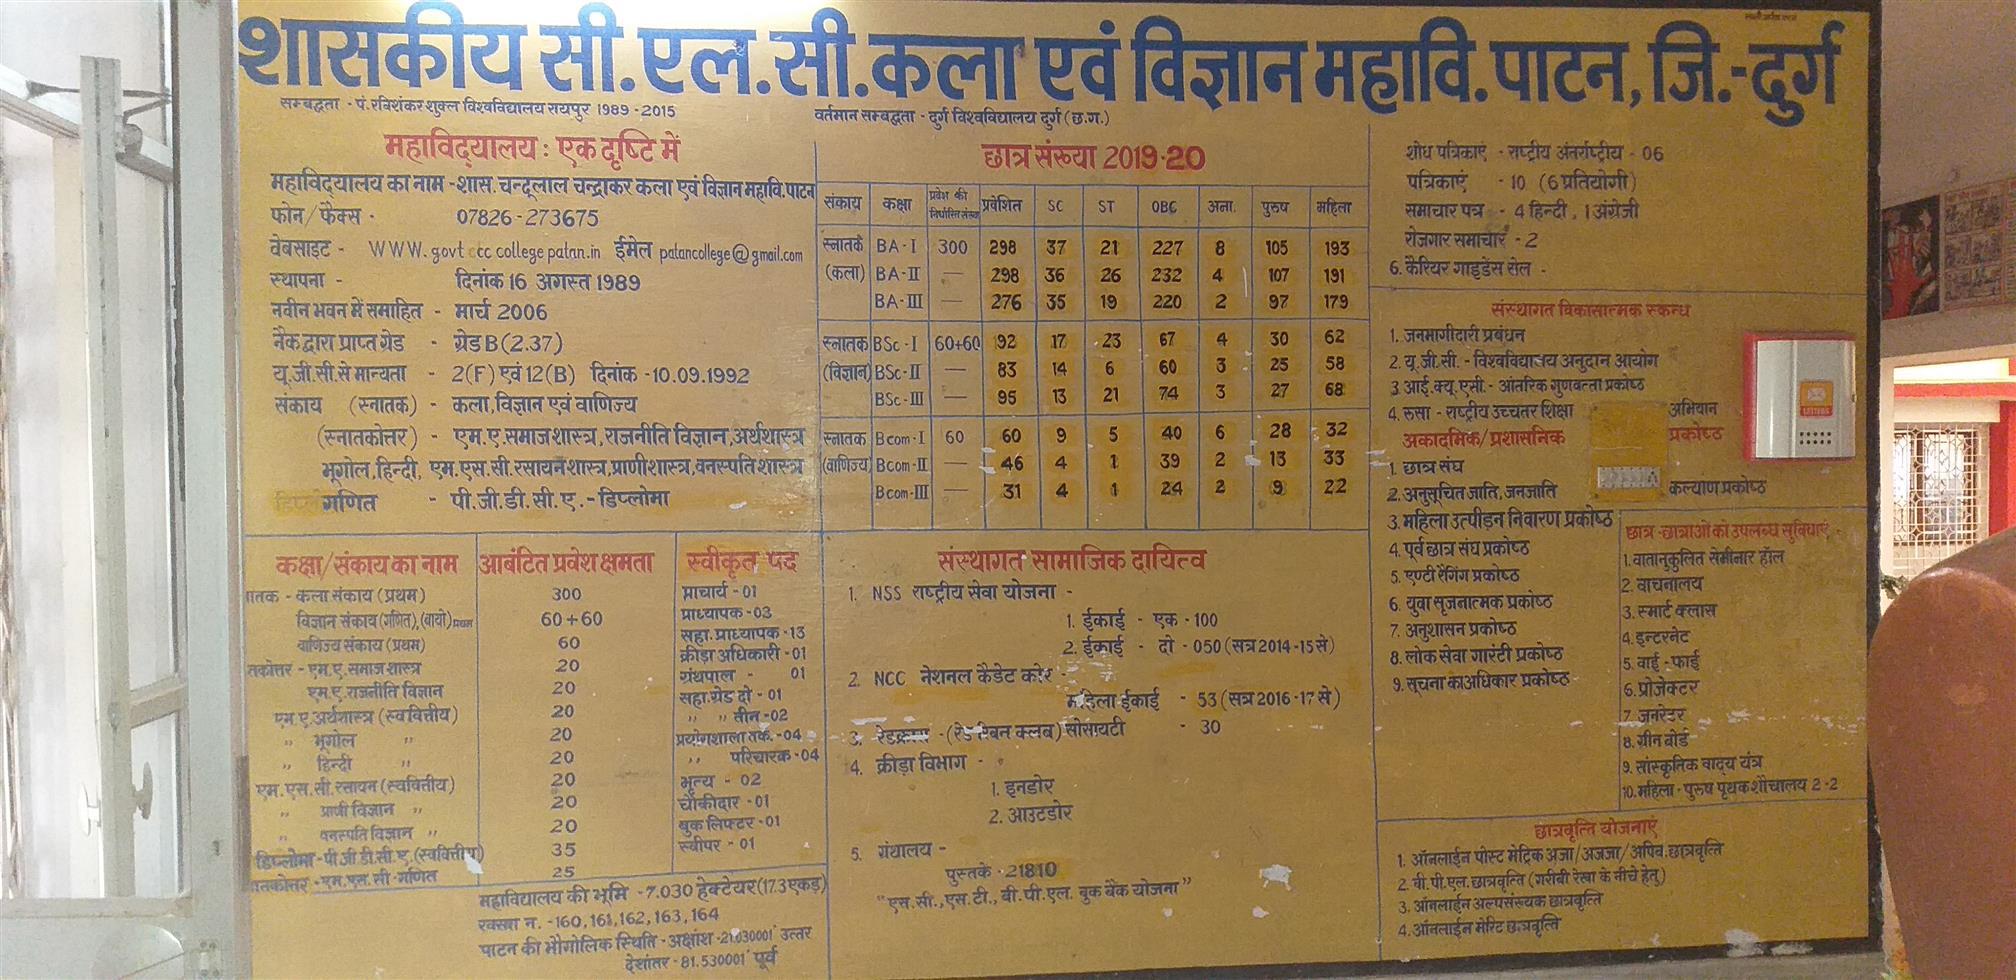 शासकीय सी.एल.सी.कला एवं विज्ञान महावि.पाटन, जि.-दुर्ग
सम्बद्धता - पं.रविशंकर शुक्ल विश्वविद्यालय रायपुर 1989-2015
वर्तमान सम्बद्धता - दुर्ग विश्वविद्यालय दुर्ग (छ.ग.)
महाविद्यालय : एक दृष्टि में
महाविद्यालय का नाम -शास.चन्दूलाल चन्द्राकर कला एवं विज्ञान महावि.पाटन
फोन/फैक्स - 07826-273675
वेबसाइट - WWW.govt ccc college patan.in ईमेल patancollege@gmail.com
स्थापना - दिनांक 16 अगस्त 1989
नवीन भवन में समाहित - मार्च 2006
नैक द्वारा प्राप्त ग्रेड - ग्रेड B (2.37)
यू.जी.सी.से मान्यता - 2(F) एवं 12(B) दिनांक -10.09.1992
संकाय (स्नातक) - कला,विज्ञान एवं वाणिज्य
(स्नातकोत्तर) - एम.ए.समाजशास्त्र,राजनीति विज्ञान,अर्थशास्त्र
भूगोल,हिन्दी, एम.एस.सी.रसायनशास्त्र,प्राणीशास्त्र,वनस्पतिशास्त्र
गणित - पी.जी.डी.सी.ए.-डिप्लोमा
छात्र संख्या 2019-20
संकाय कक्षा प्रवेश की निर्धारित संख्या प्रवेशित SC ST OBC अना. पुरुष महिला
स्नातक BA-I 300 298 37 21 227 8 105 193
(कला) BA-II — 298 36 26 232 4 107 191
BA-III — 276 35 19 220 2 97 179
स्नातक BSc-I 60+60 92 17 23 67 4 30 62
(विज्ञान) BSc-II — 83 14 6 60 3 25 58
BSc-III — 95 13 21 74 3 27 68
स्नातक Bcom-I 60 60 9 5 40 6 28 32
(वाणिज्य) Bcom-II — 46 4 1 39 2 13 33
Bcom-III — 31 4 1 24 2 9 22
शोध पत्रिकाएं - राष्ट्रीय अंतर्राष्ट्रीय - 06
पत्रिकाएं - 10 (6 प्रतियोगी)
समाचार पत्र - 4 हिन्दी, 1 अंग्रेजी
रोजगार समाचार - 2
6. कैरियर गाइडेंस सेल -
संस्थागत विकासात्मक स्कन्ध
1. जनभागीदारी प्रबंधन
2. यू.जी.सी. - विश्वविद्यालय अनुदान आयोग
3. आई.क्यू.एसी.- आंतरिक गुणवत्ता प्रकोष्ठ
4. रूसा - राष्ट्रीय उच्चतर शिक्षा अभियान
अकादमिक/प्रशासनिक प्रकोष्ठ
1. छात्र संघ
2. अनुसूचित जाति, जनजाति कल्याण प्रकोष्ठ
3. महिला उत्पीड़न निवारण प्रकोष्ठ
4. पूर्व छात्र संघ प्रकोष्ठ
5. एण्टी रैगिंग प्रकोष्ठ
6. युवा सृजनात्मक प्रकोष्ठ
7. अनुशासन प्रकोष्ठ
8. लोक सेवा गारंटी प्रकोष्ठ
9. सूचना का अधिकार प्रकोष्ठ
LETTERS
छात्र-छात्राओं को उपलब्ध सुविधाएं -
1. वातानुकुलित सेमीनार हॉल
2. वाचनालय
3. स्मार्ट क्लास
4. इन्टरनेट
5. वाई - फाई
6. प्रोजेक्टर
7 जनरेटर
8. ग्रीन बोर्ड
9. सांस्कृतिक वाद्य यंत्र
10. महिला - पुरूष पृथक शौचालय 2-2
कक्षा/संकाय का नाम आबंटित प्रवेश क्षमता स्वीकृत पद
ातक - कला संकाय (प्रथम) 300
विज्ञान संकाय (गणित),(बायो) प्रथम 60+60
वाणिज्य संकाय (प्रथम) 60
तकोत्तर - एम.ए.समाज शास्त्र 20
एम.ए.राजनीति विज्ञान 20
एम.ए.अर्थशास्त्र (स्ववित्तीय) 20
,, भूगोल ,, 20
,, हिन्दी ,, 20
एम.एस.सी.रसायन (स्ववित्तीय) 20
,, प्राणी विज्ञान ,, 20
,, वनस्पति विज्ञान ,, 20
डिप्लोमा -पी.जी.डी.सी.ए.(स्ववित्तीय) 35
ातकोत्तर -एम.एस.सी -गणित 25
प्राचार्य - 01
प्राध्यापक -03
सहा.प्राध्यापक -13
क्रीडा अधिकारी -01
ग्रंथपाल - 01
सहा.ग्रेड दो -01
,, ,, तीन -02
प्रयोगशाला तक. -04
,, परिचारक -04
भृत्य - 02
चौकीदार -01
बुक लिफ्टर -01
स्वीपर - 01
महाविद्यालय की भूमि -7.030 हेक्टेयर (17.3 एकड़)
खसरा न. -160,161,162,163,164
पाटन की भौगोलिक स्थिति - अक्षांश -21.030001° उत्तर
देशांतर - 81.530001° पूर्व
संस्थागत सामाजिक दायित्व
1. NSS राष्ट्रीय सेवा योजना -
1. ईकाई - एक - 100
2. ईकाई - दो - 050 (सत्र 2014-15 से)
2. NCC नेशनल कैडेट कोर -
महिला ईकाई - 53 (सत्र 2016-17 से)
3. रेडक्रास - (रेड रिबन क्लब) सोसायटी - 30
4. क्रीड़ा विभाग -
1. इनडोर
2. आउटडोर
5. ग्रंथालय -
पुस्तके - 21810
"एस.सी.,एस.टी., बी.पी.एल. बुक बैंक योजना"
छात्रवृत्ति योजनाएं
1. ऑनलाईन पोस्ट मेट्रिक अजा/अजजा/अपिव.छात्रवृत्ति
2. बी.पी.एल.छात्रवृत्ति (गरीबी रेखा के नीचे हेतु)
3. ऑनलाईन अल्पसंख्यक छात्रवृत्ति
4. ऑनलाईन मेरिट छात्रवृत्ति